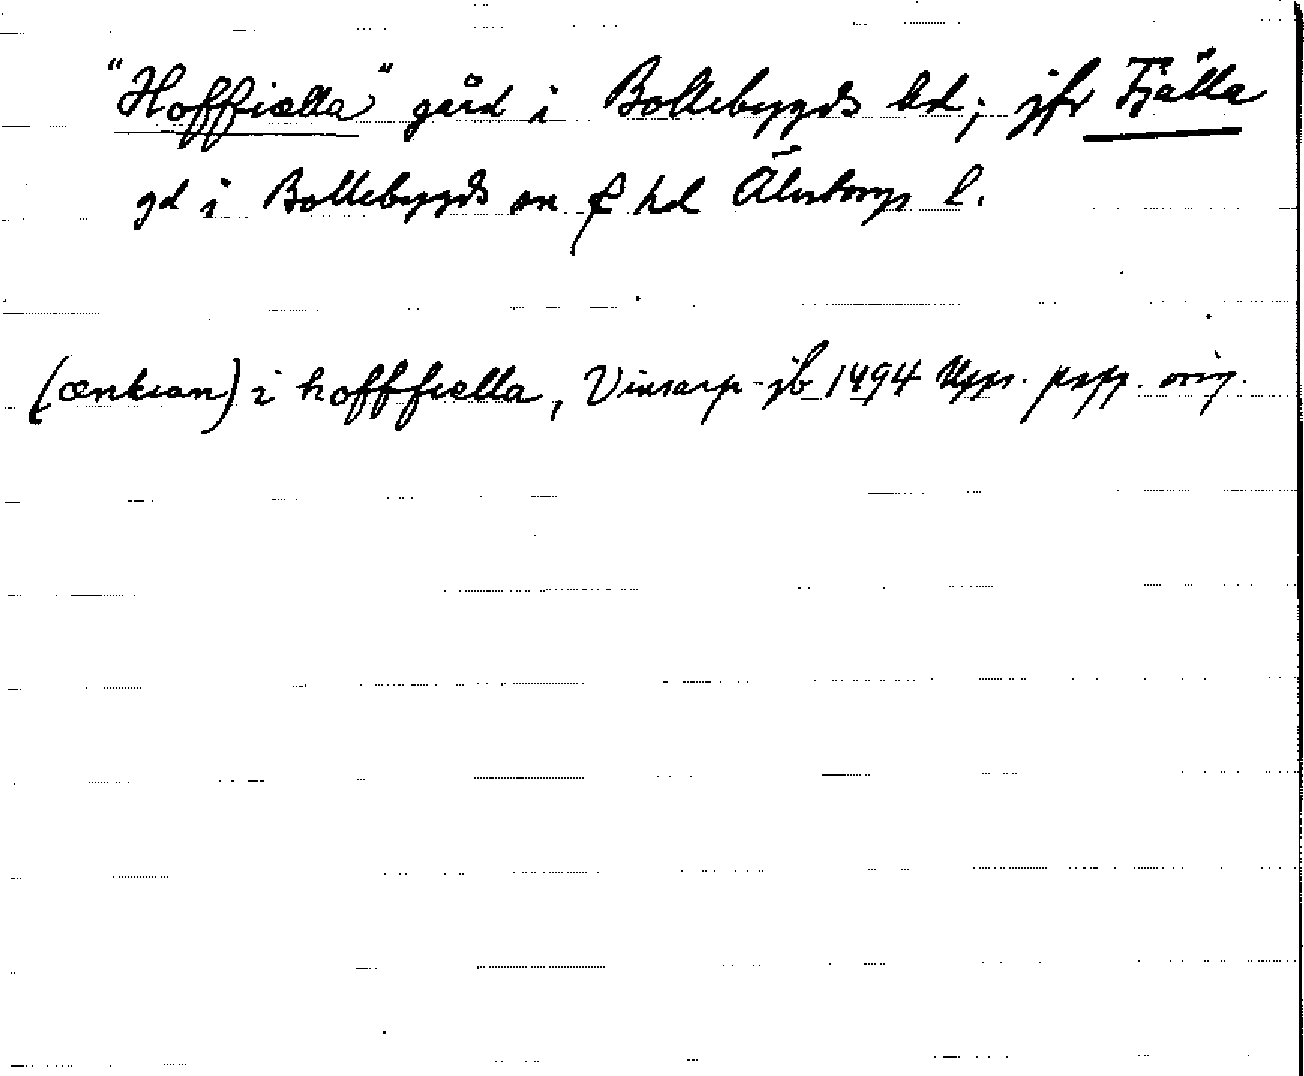 "Hofffiælla" gård i Bollebygds hd; jfr Fjälla
gd i Bollebygds sn o hd Älvsborgs l.
(ænkian) i hofffiælla, Vinsarp-jb 1494 Upps. papp. orig.